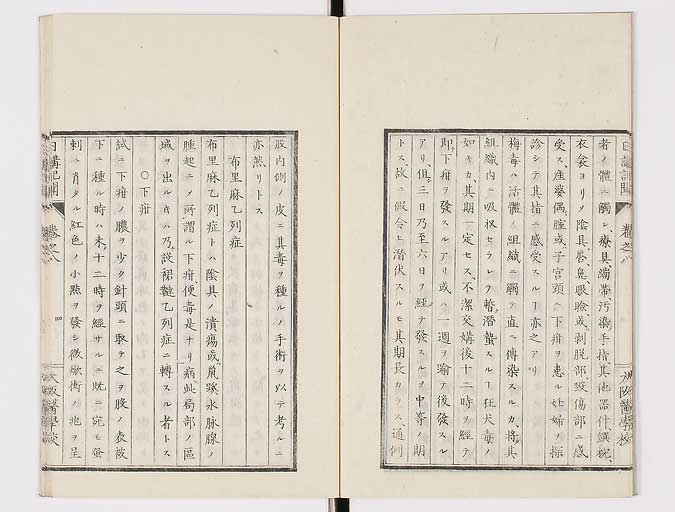 日講記聞 卷之八 大阪醫學校
者ノ體ニ觸レ療具繃帶汚染手指其他器什饌椀、
衣衾ヨリノ陰具唇臭眼瞼或ハ剥脱部毀傷部ニ感
受ス、産婆偶腟或ハ子宮頚ヘ下疳ヲ患ル妊婦ヲ探
診シテ其指ニ感受スルヿ亦之アリ
梅毒ハ活體ノ組織ニ觸テ直ニ傳染スルカ、將其
組織内ニ吸收セラレテ潛蟄スルヿ狂犬毒ノ
如キカ、其期一定セス、不潔交媾後十二時ヲ經テ
即下疳ヲ發スルアリ或ハ一週ヲ踰テ後發スル
アリ、但三日乃至六日ヲ經テ發スルヲ中等ノ期
トス、故ニ假令ヒ潛伏スルモ其期長カラス、通例
股内側ノ皮ニ其毒ヲ種ルノ手術ヲ以テ考ルニ
亦然リトス
布里麻乙列症
布里麻乙列症トハ陰具ノ潰瘍或ハ鼠蹊水脉腺ノ
腫起ニノ所謂ル下疳便毒是ナリ病此局部ノ區
域ヲ出ルキハ乃設裙韃乙列症ニ轉スル者トス
○下疳
試ニ下疳ノ膿ヲ少ク針頭ニ取テ之ヲ股ノ表被
下ニ種ル時ハ未十二時ヲ經サルニ既ニ宛モ蚤
刺ニ肖タル紅色ノ小點ヲ發シ微焮衝ノ兆ヲ呈
日講記聞 卷之八 四 大阪醫學校